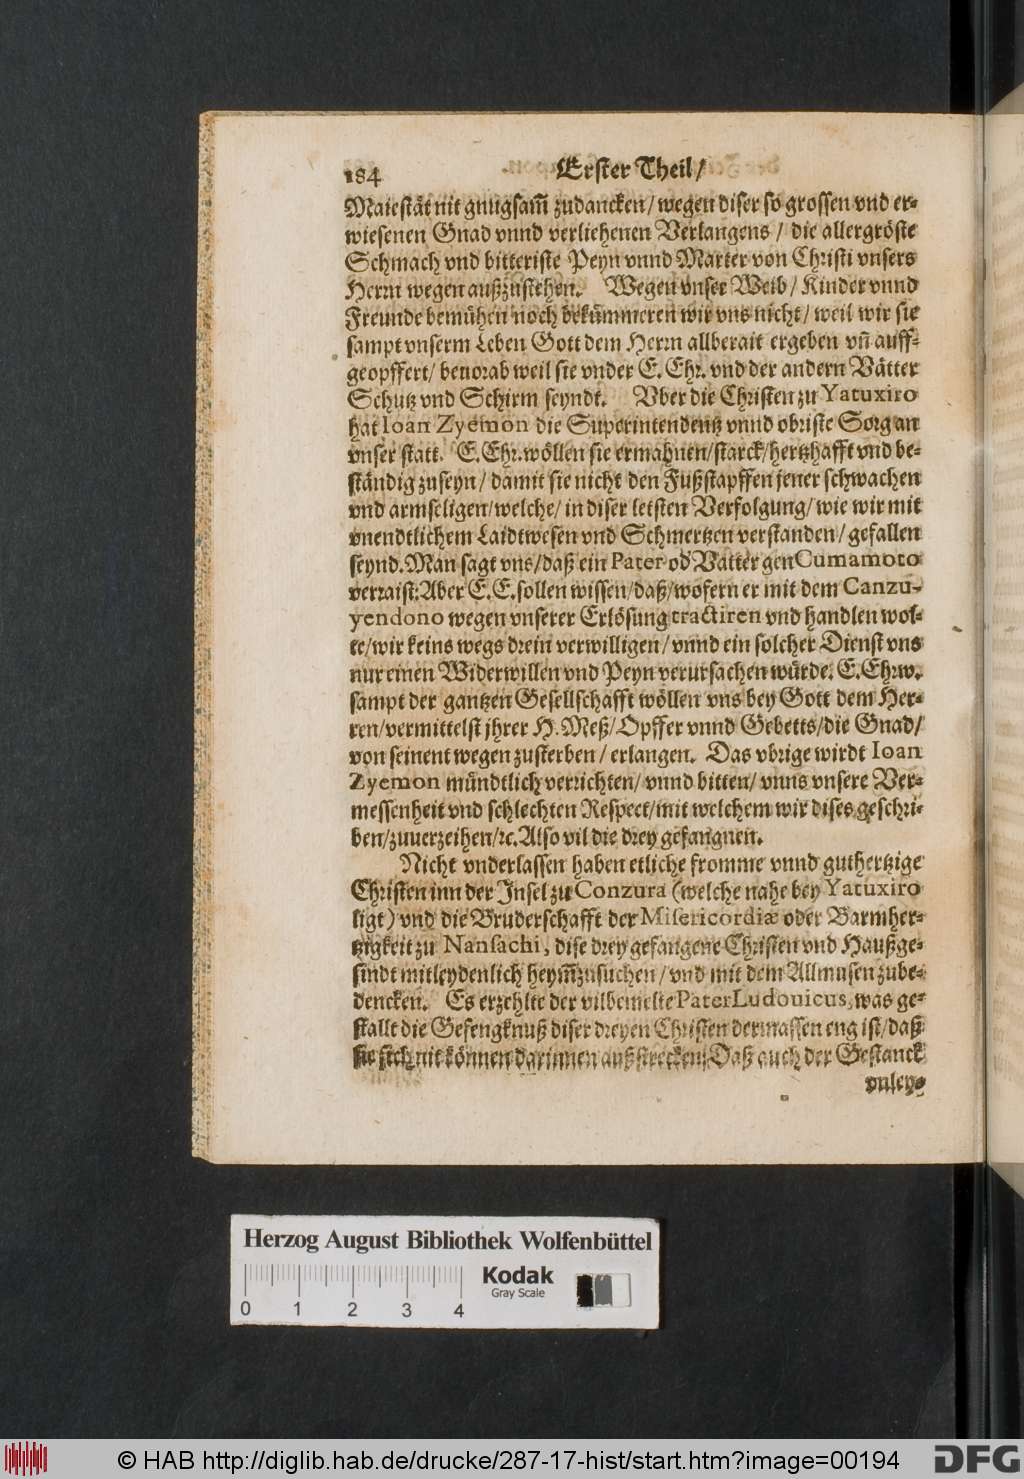 184 Erster Theil/
Maiestät nit gnugsam̃ zudancken/ wegen diser so grossen vnd er-
wiesenen Gnad vnnd verliehenen Verlangens / die allergröste
Schmach vnd bitteriste Peyn vnnd Marter von Christi vnsers
Herrn wegen außzustehen. Wegen vnser Weib / Kinder vnnd
Freunde bemühen noch bekümmeren wir vns nicht/ weil wir sie
sampt vnserm Leben Gott dem Herrn allberait ergeben vñ auff-
geopffert/ beuorab weil sie vnder E. Ehr. vnd der andern Vätter
Schutz vnd Schirm seyndt. Vber die Christen zu Yatuxiro
hat Ioan Zyemon die Superintendentz vnnd obriste Sorg an
vnser statt. E. Ehr. wöllen sie ermahnen/starck/hertzhafft vnd be-
ständig zuseyn / damit sie nicht den Fußstapffen jener schwachen
vnd armseligen/welche/ in diser letsten Verfolgung/ wie wir mit
vnendtlichem Laidtwesen vnd Schmertzen verstanden / gefallen
seynd. Man sagt vns/daß ein Pater od Vatter gen Cumamoto
verraist: Aber E. E. sollen wissen/daß/wofern er mit dem Canzu-
yendono wegen vnserer Erlösung tractiren vnd handlen wol-
te/wir keins wegs drein verwilligen / vnnd ein solcher Dienst vns
nur einen Widerwillen vnd Peyn verursachen würde. E. Ehrw.
sampt der gantzen Gesellschafft wöllen vns bey Gott dem Her-
ren/vermittelst jhrer H. Meß/ Opffer vnnd Gebetts/die Gnad/
von seinent wegen zusterben / erlangen. Das vbrige wirdt Ioan
Zyemon mündtlich verrichten/ vnnd bitten/ vnns vnsere Ver-
messenheit vnd schlechten Respect/mit welchem wir dises geschri-
ben/zuuerzeihen/ꝛc. Also vil die drey gefangnen.
Nicht vnderlassen haben etliche fromme vnnd guthertzige
Christen inn der Insel zu Conzura (welche nahe bey Yatuxiro
ligt) vnd die Bruderschafft der Misericordiæ oder Barmher-
tzigkeit zu Nansachi, dise drey gefangene Christen vnd Haußge-
sindt mitleydenlich heym̃zusuchen / vnd mit dem Allmusen zube-
dencken. Es erzehlte der vilbemelte Pater Ludouicus, was ge-
stallt die Gefengknuß diser dreyen Christen dermassen eng ist/daß
sie sich nit können darinnen außstrecken: Daß auch der Gestanck
vnley-
Herzog August Bibliothek Wolfenbüttel
Kodak
Gray Scale
0 1 2 3 4
© HAB http://diglib.hab.de/drucke/287-17-hist/start.htm?image=00194
DFG